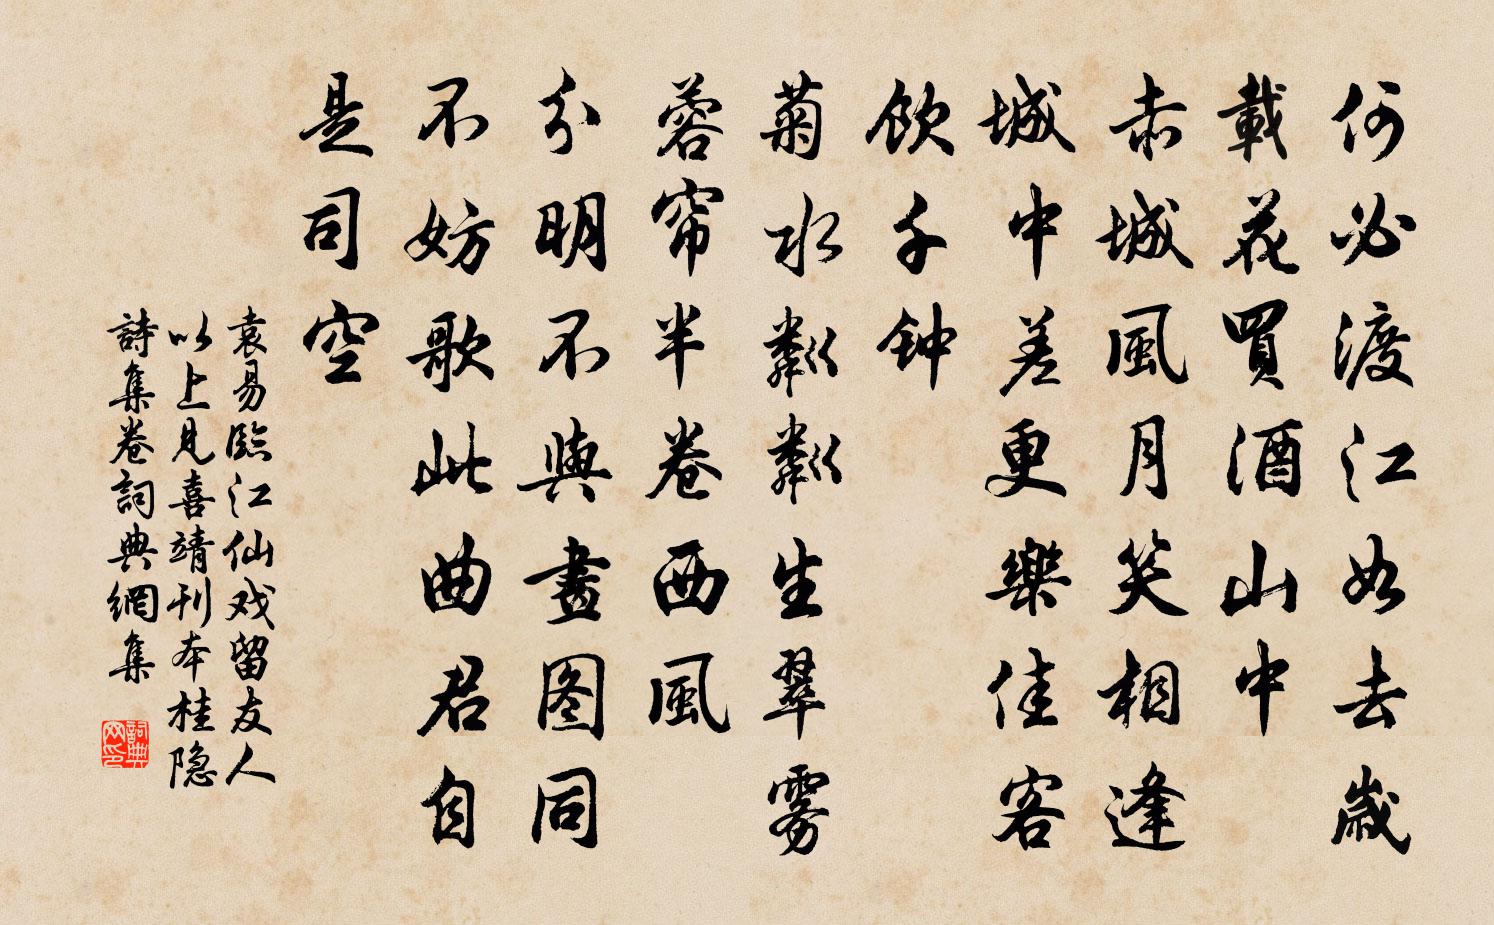 何必渡江如去歲
載花買酒山中
赤城風月笑相逢
城中差更樂佳客
飲千钟
菊水粼粼生翠雾
蓉帘半卷西風
分明不與畫图同
不妨歌此曲君自
是司空
袁易臨江仙戏留友人
以上見喜靖刊本桂隐
詩集卷詞典網集
詞典网印